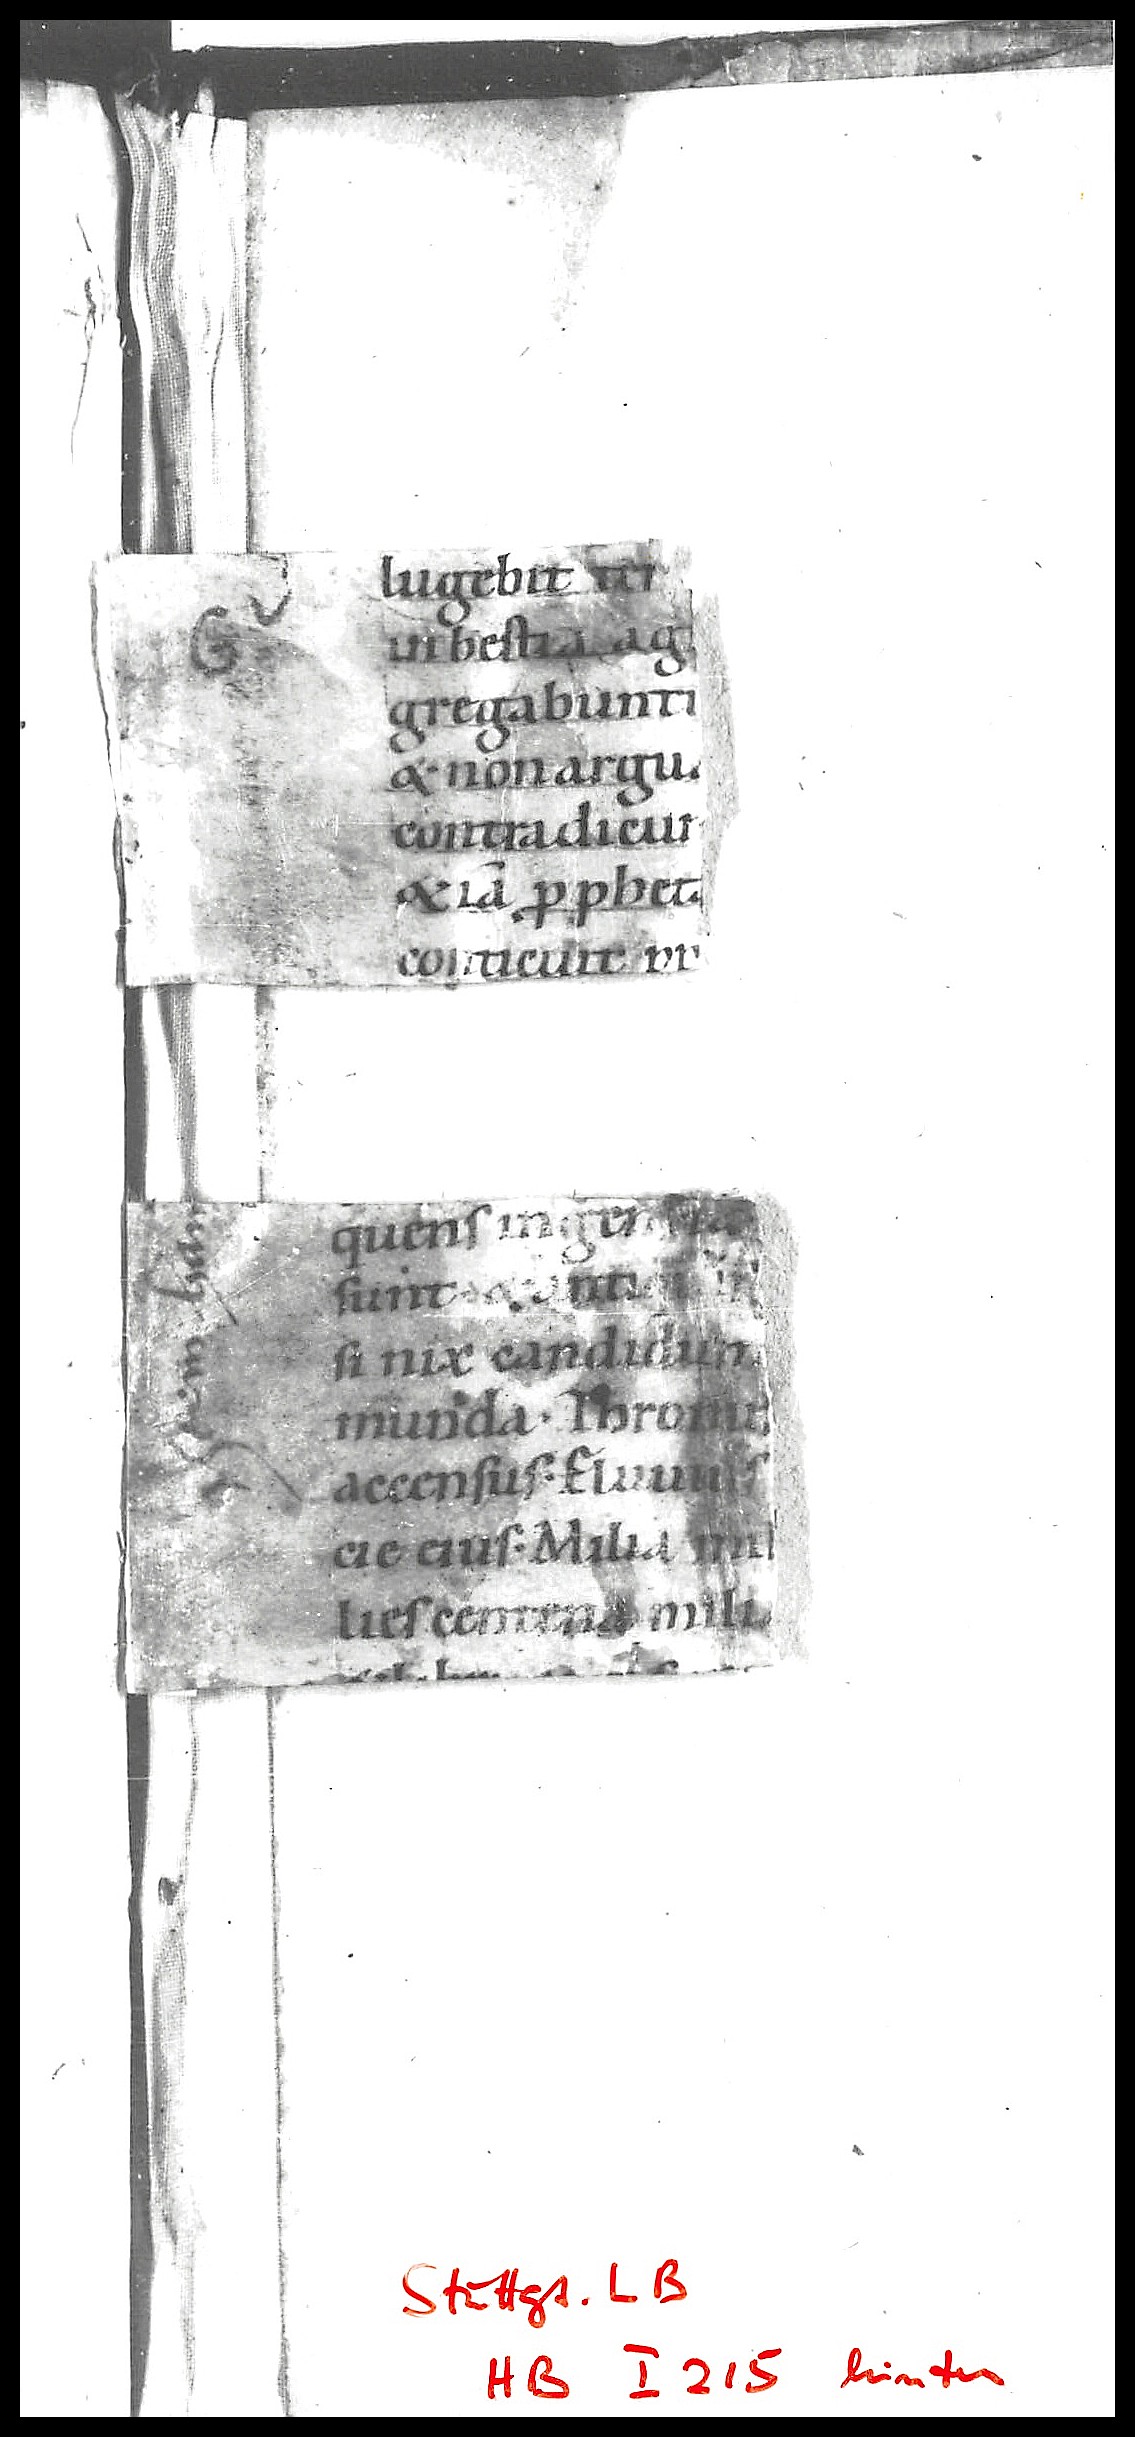 lugebit ter
in bestia ag
gregabunti
& non argu
contradicur
& iā ꝓphet
conticuit
quens ingen
sunt &
si nix candidum
munda. Thronus
accensus. Fluuius
cie eius. Milia mil
lies centena mili
Stuttgt. LB
HB I 215 hinten